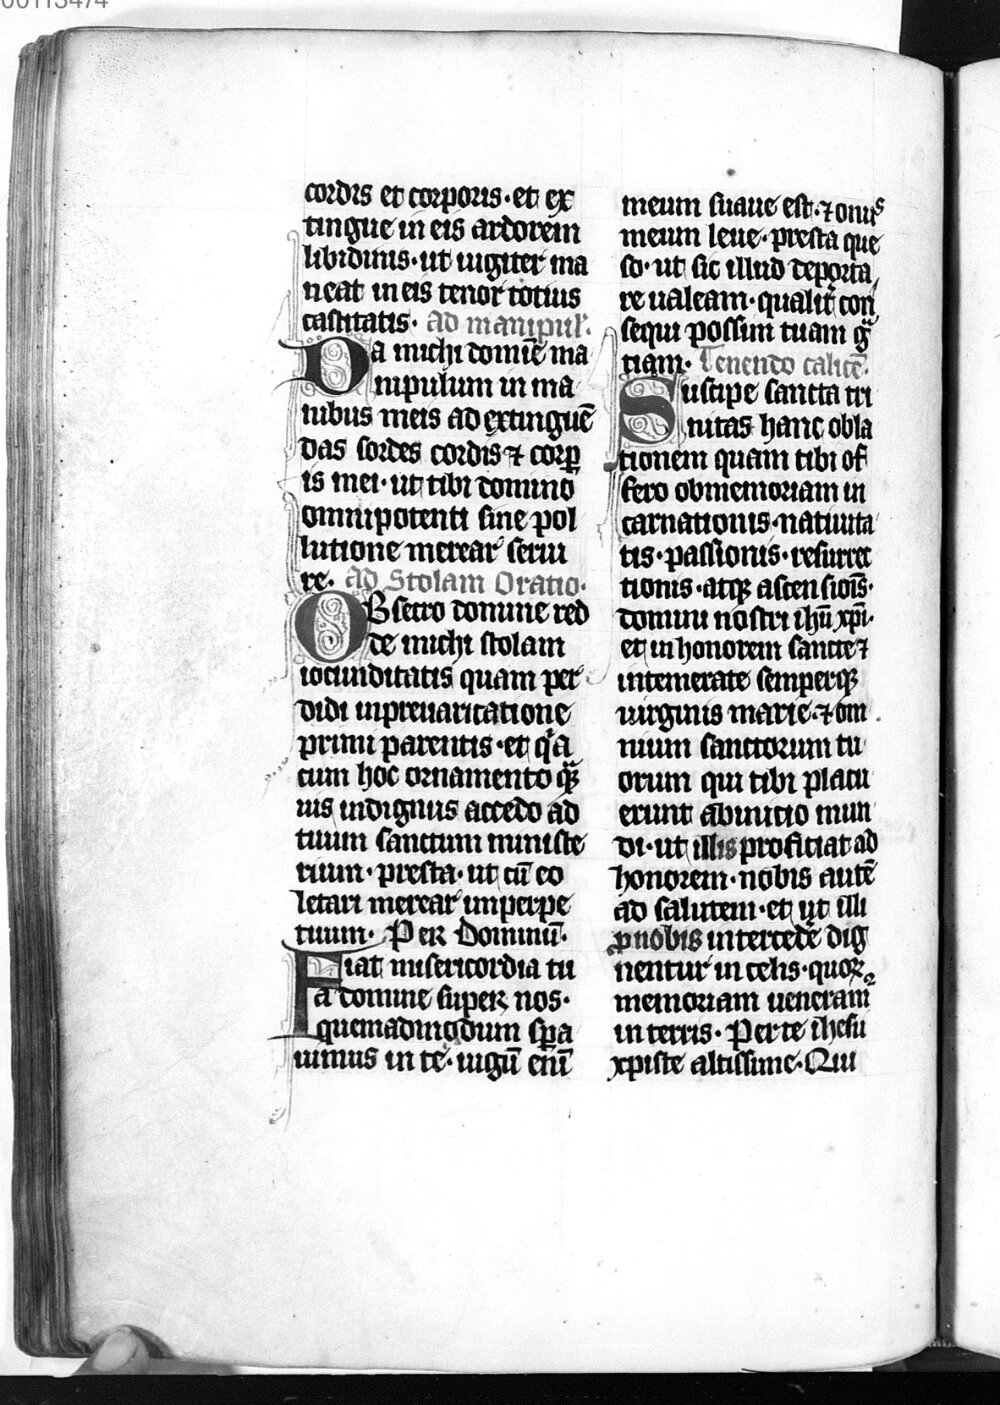 cordis et corporis· et ex
tingue in eis ardorem
libidinis· ut iugiter ma
neat in eis tenor totius
castitatis· ad manipul·
Da michi domīe ma
nipulum in ma
nibus meis ad extinguē
das sordes cordis ⁊ corꝑ
is mei· ut tibi domino
omnipotenti sine pol
lutione merear serui
re· ad Stolam Oratio·
OBsecro domine red
de michi stolam
iocunditatis quam per
didi inpreuaricatione
primi parentis· et q̇a
cum hoc ornamento q̄ꝫ
uis indignus accedo ad
tuum sanctum ministe
rium· presta· ut cū eo
letari merear inperpe
tuum· Per Dominū·
Fiat misericordia tu
a domine super nos·
quemadmodum sꝑa
uimus in te· iugū enī
meum suaue est· ⁊ onus
meum leue· presta que
so· ut sic illud deporta
re ualeam· qualit̄ con
sequi possim tuam gr̄a
tiam· Tenendo calicē·
Suscipe sancta tri
nitas hanc obla
tionem quam tibi of
fero obmemoriam in
carnationis· natiuita
tis· passionis· resurrec
tionis· atqꝫ ascensiōis·
domini nostri ihū xp̄i·
et in honorem sancte ⁊
intemerate semperqꝫ
uirginis marie· ⁊ om
nium sanctorum tu
orum qui tibi placu
erunt abinitio mun
di· ut illis proficiat ad
honorem· nobis autē
ad salutem· et ut illi
ꝓnobis intercedē dig
nentur in celis· quoꝝ
memoriam ueneram̄
in terris· Per te ihesu
xpiste altissime· Qui
00113474